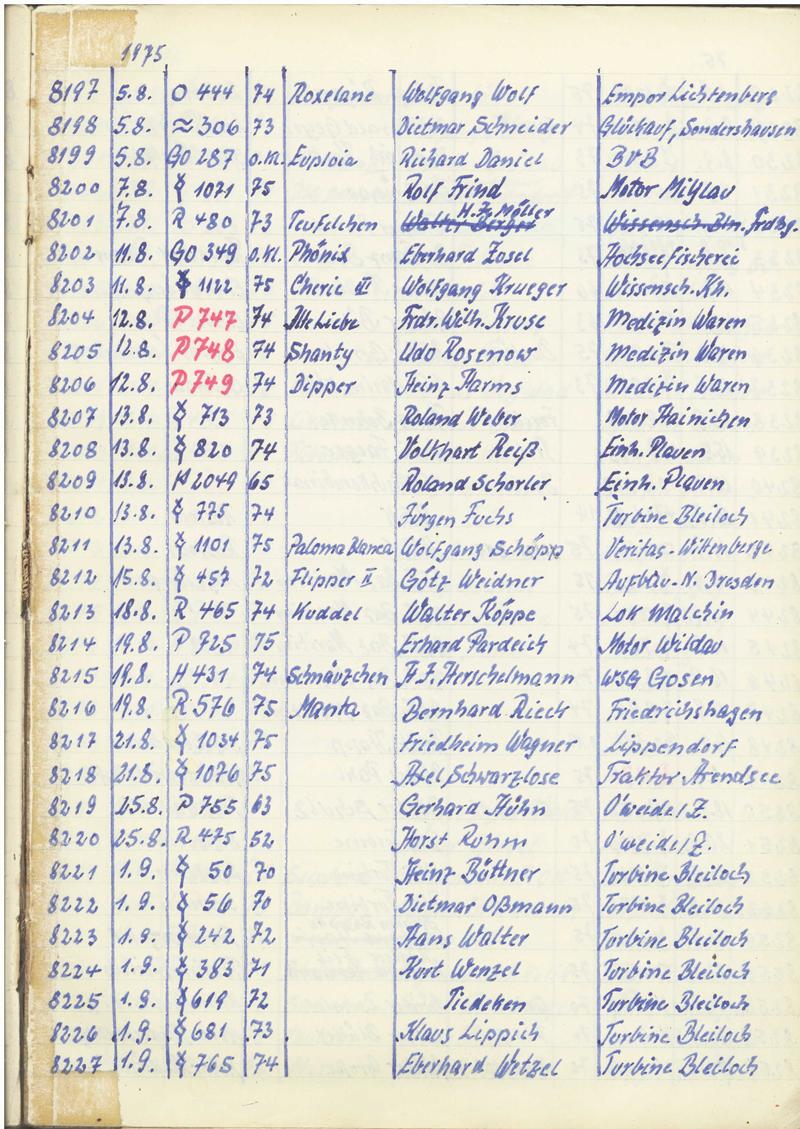 1975
8197 5.8. O 444 74 Roxelane Wolfgang Wolf Empor Lichtenberg
8198 5.8. ≈ 306 73 Dietmar Schneider Glückauf, Sondershausen
8199 5.8. GO 287 o.Kl. Euploia Richard Daniel BVB
8200 7.8. 1071 75 Rolf Frind Motor Mylau
H.J. Möller
8201 7.8. R 480 73 Teufelchen Walter Berger Wissensch. Bln. Frdbg.
8202 11.8. GO 349 o.Kl. Phönix Eberhard Zosel Hochseefischerei
8203 11.8. 1122 75 Cherie III Wolfgang Krueger Wissensch. Kh.
8204 12.8. P 747 74 Alte Liebe Frdr. Wilh. Kruse Medizin Waren
8205 12.8. P 748 74 Shanty Udo Rosenow Medizin Waren
8206 12.8. P 749 74 Dipper Heinz Harms Medizin Waren
8207 13.8. 713 73 Roland Weber Motor Hainichen
8208 13.8. 820 74 Volkhart Reiß Einh. Plauen
8209 13.8. 2049 65 Roland Schorler Einh. Plauen
8210 13.8. 775 74 Jürgen Fuchs Turbine Bleiloch
8211 13.8. 1101 75 Paloma Blanca Wolfgang Schöpp Veritas-Wittenberge
8212 15.8. 457 72 Flipper II Götz Weidner Aufbau-N. Dresden
8213 18.8. R 465 74 Kuddel Walter Köppe Lok Malchin
8214 19.8. P 725 75 Erhard Pardeich Motor Wildau
8215 19.8. H 431 74 Schnäuzchen H.J. Herschelmann WSG Gosen
8216 19.8. R 576 75 Manta Bernhard Rieck Friedrichshagen
8217 21.8. 1034 75 Friedheim Wagner Lippendorf
8218 21.8. 1076 75 Axel Schwarzlose Traktor Arendsee
8219 25.8. P 755 63 Gerhard Huhn O'weide/Z.
8220 25.8. R 475 52 Horst Ruhm O'weide/Z.
8221 1.9. 50 70 Heinz Büttner Turbine Bleiloch
8222 1.9. 56 70 Dietmar Oßmann Turbine Bleiloch
8223 1.9. 242 72 Hans Walter Turbine Bleiloch
8224 1.9. 383 71 Kurt Wenzel Turbine Bleiloch
8225 1.9. 619 72 Tiedeken Turbine Bleiloch
8226 1.9. 681 73 Klaus Lippich Turbine Bleiloch
8227 1.9. 765 74 Eberhard Wetzel Turbine Bleiloch